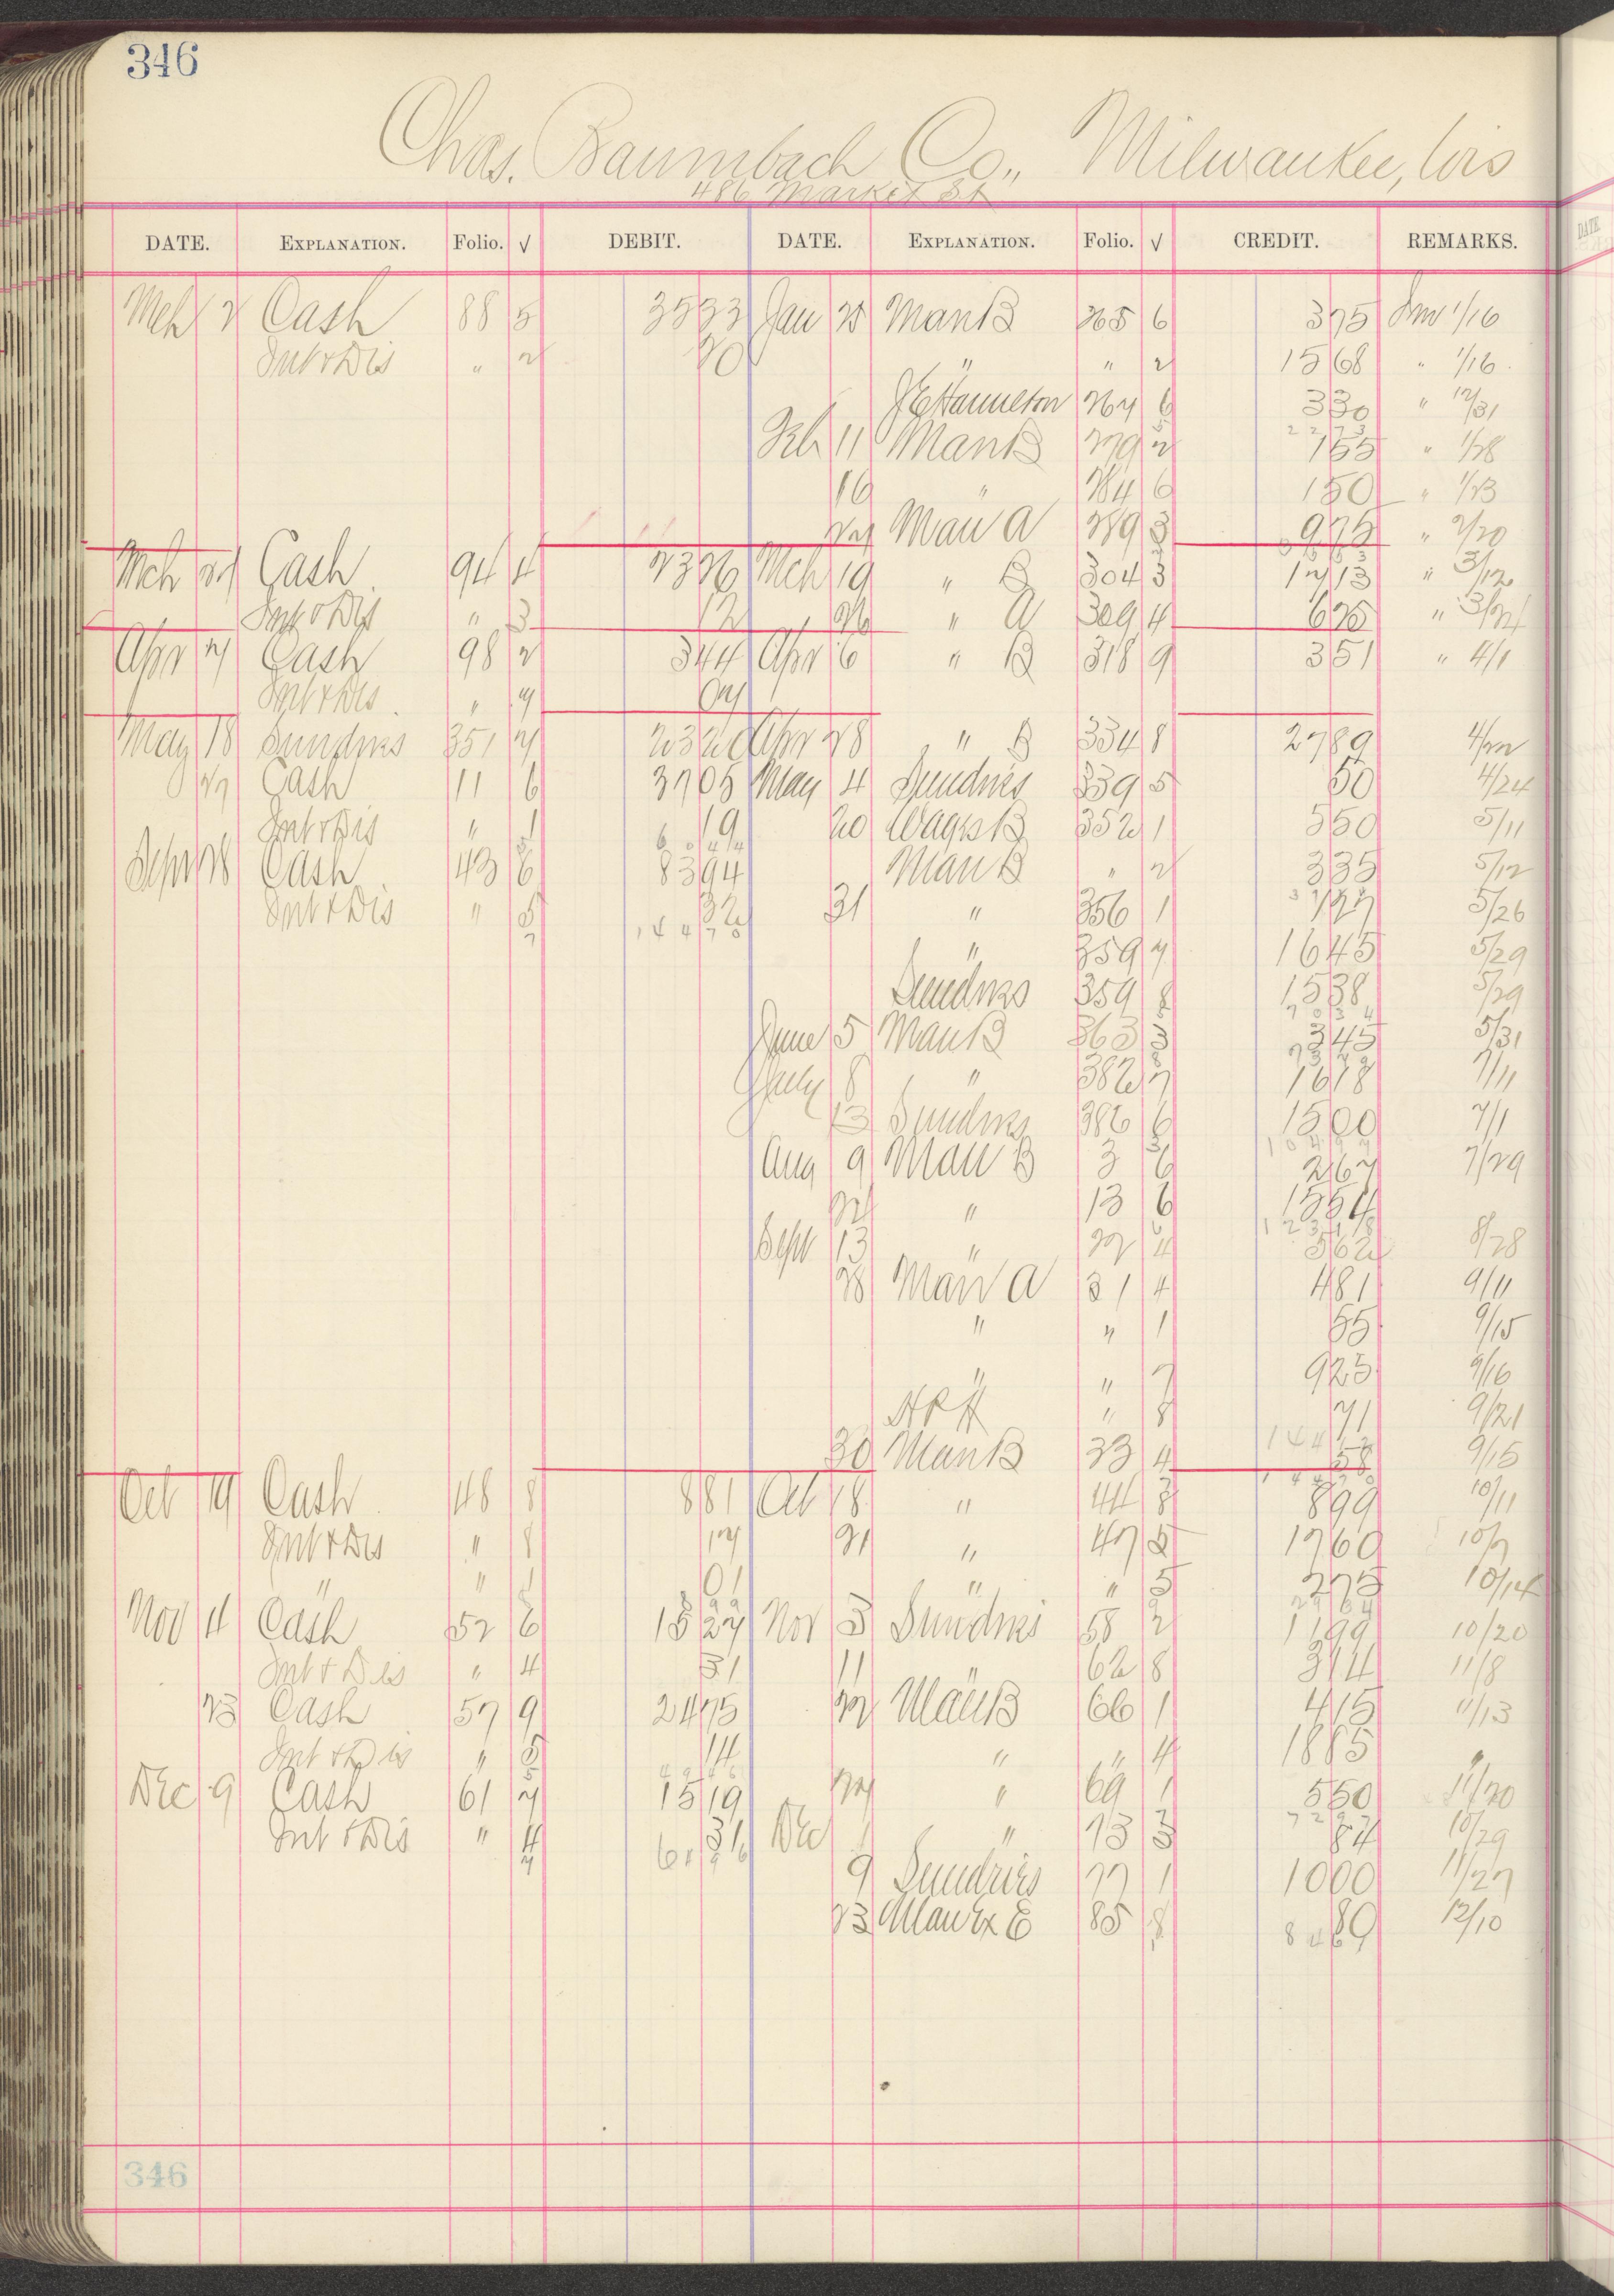 346
Chas. Baumbach Co., Milwaukee, Wis
486 Market St
DATE. EXPLANATION. Folio. √ DEBIT. DATE. EXPLANATION. Folio. √ CREDIT. REMARKS.
Mch 2 Cash 88 5 3533 Jan 25 Man B 265 6 375 Inv 1/16
Int & Dis " 2 20 " " 2 1568 " 1/16
264 6 330 " 12/31
Feb 11 Man B 279 2 155 " 1/28
16 " 284 6 150 " 1/23
Man A 289 3 975 " 2/20
Mch Cash 94 4 2326 Mch 19 " B 304 3 1713 " 3/12
Int & Dis " 3 12 26 " A 309 4 625 "
Apr 7 Cash 98 2 344 Apr 6 " B 318 9 351 " 4/1
Int & Dis " 7 07
May 18 Sundries 351 7 2320 Apr 28 " B 334 8 2789 4/22
27 Cash 11 6 3705 May 4 Sundries 339 5 50 4/24
Int & Dis " 1 19 20 Wages B 352 1 550 5/11
Sept 28 Cash 43 6 8394 Man B " 2 335 5/12
Int & Dis " 5 32 31 " 356 1 127 5/26
14470
" 359 7 1645 5/29
Sundries 359 8 1538 5/29
June 5 Man B 363 3 345 5/31
July 8 " 382 7 1618
13 Sundries 386 6 1500 7/1
Aug 9 Man B 3 6 267 7/29
24 " 13 6 1554
Sept 13 " 22 4 562 8/28
28 Man A 31 4 481 9/11
" " 1 55 9/15
" " 7 925 9/16
" 8 71 9/21
30 Man B 33 4 58 9/15
Oct 19 Cash 48 8 881 Oct 18 " 44 8 899 10/11
Int & Dis " 8 17 21 " 47 5 1760 10/7
" " 1 01 " " 5 275 10/14
Nov 4 Cash 52 6 1527 Nov 3 Sundries 58 2 1199 10/20
Int & Dis " 4 31 11 " 62 8 314 11/8
23 Cash 57 9 2475 22 Man B 66 1 415 11/13
Int & Dis " 5 14 " " 4 1885 "
Dec 9 Cash 61 7 1519 " 69 1 550 11/20
Int & Dis " 4 31 Dec " 73 3 84 10/29
9 Sundries 77 1 1000 11/27
23 Man Ex E 85 8 89 12/10
346